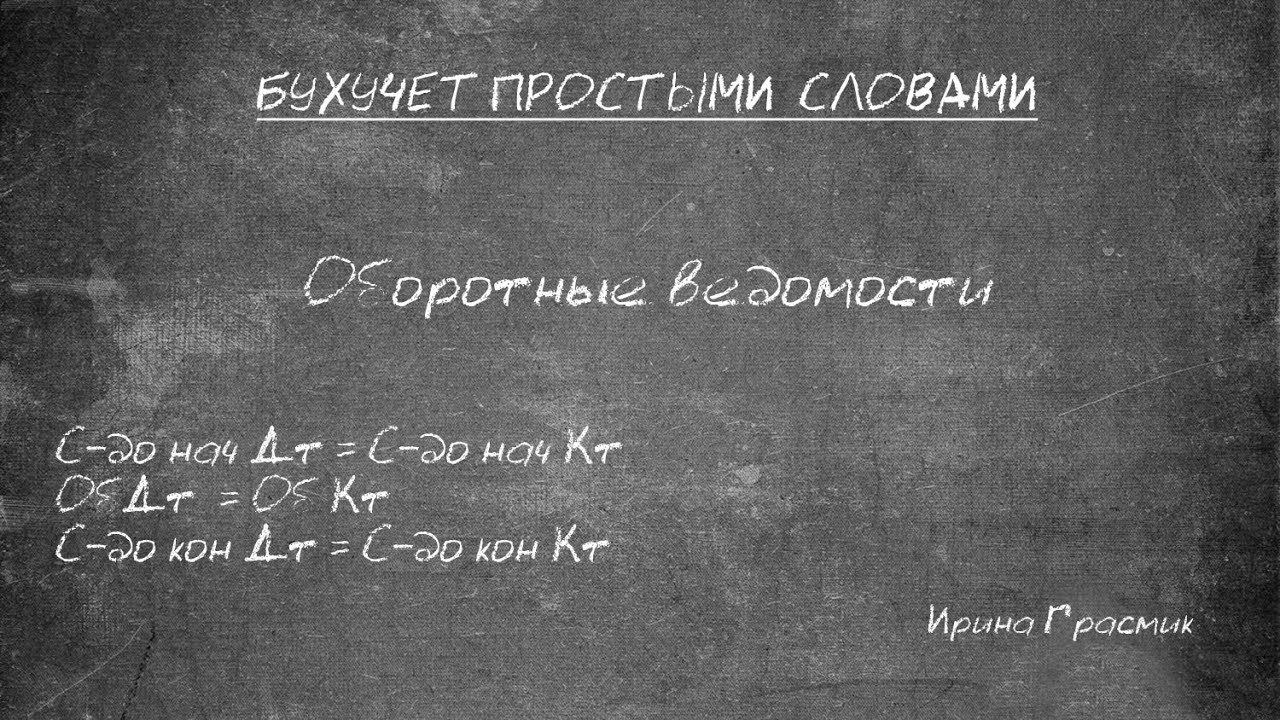 БУХУЧЕТ ПРОСТЫМИ СЛОВАМИ
Оборотные ведомости
С-до нач Дт = С-до нач Кт
Об Дт = Об Кт
С-до кон Дт = С-до кон Кт
Ирина Грасмик